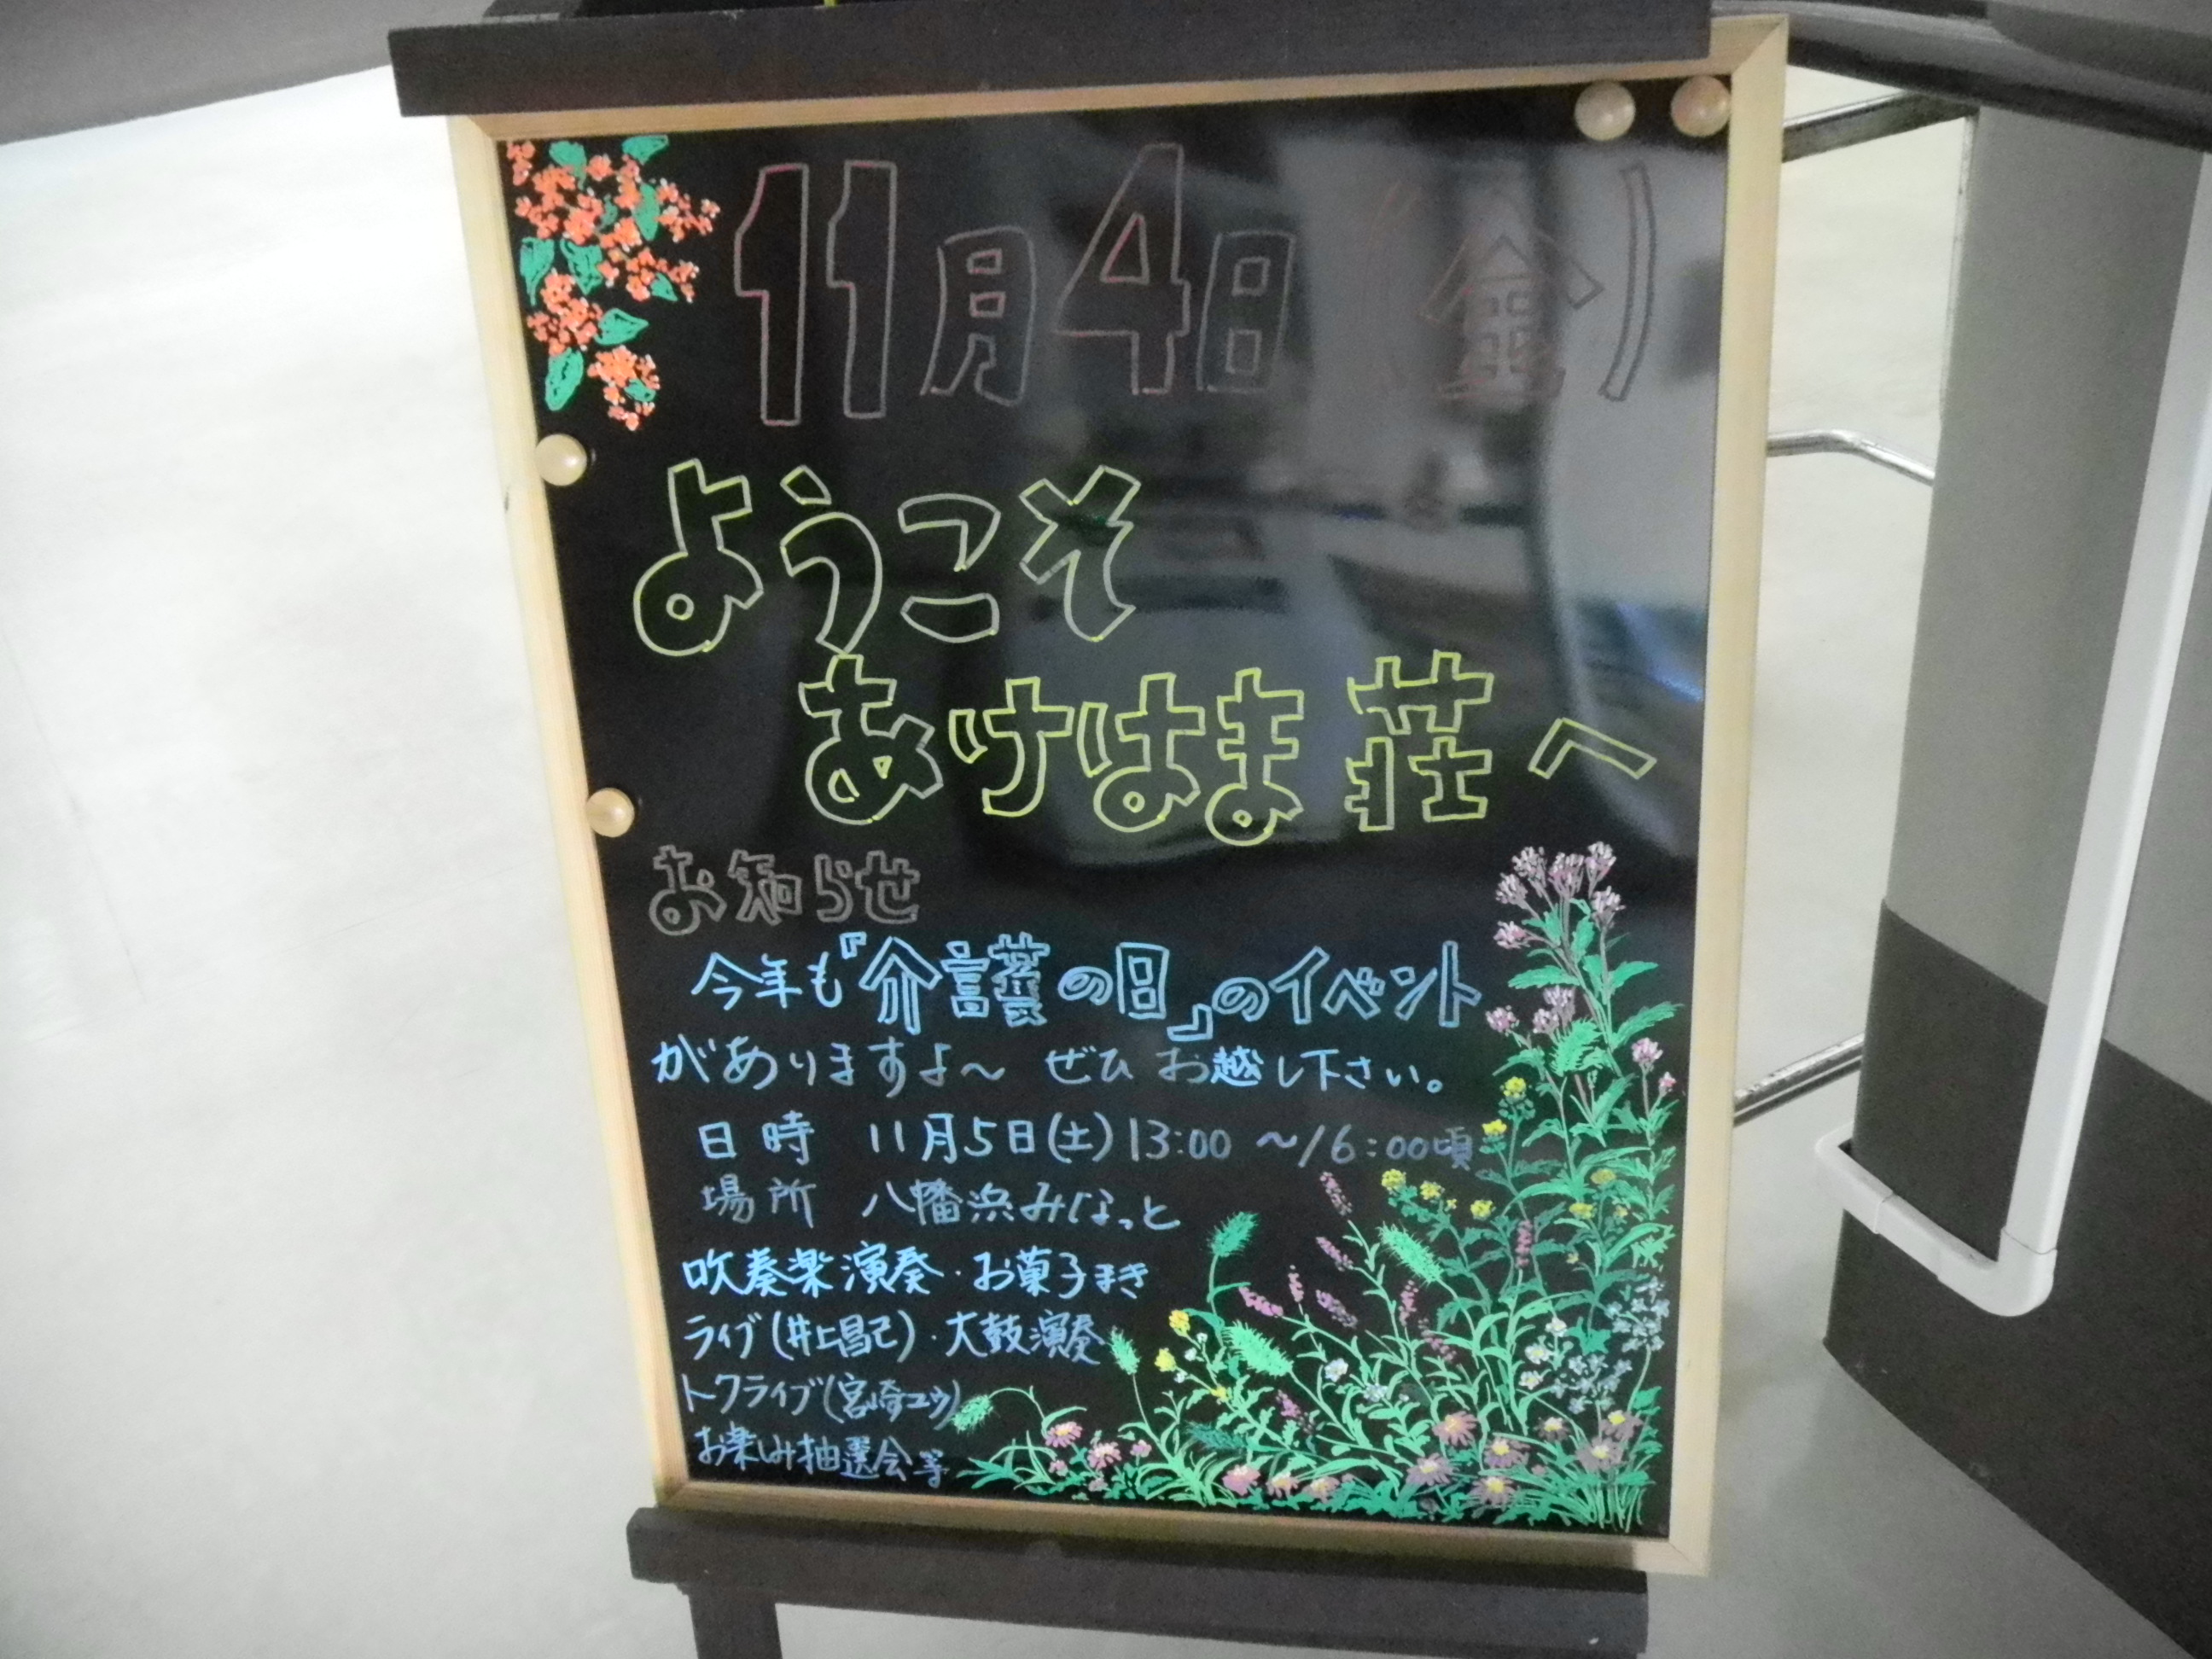 11月4日(金)
ようこそ
あけはま荘へ
お知らせ
今年も『介護の日』のイベント
がありますよ～ ぜひ お越し下さい。
日時 11月5日(土)13:00 ～16:00頃
場所 八幡浜みなっと
吹奏楽演奏・お菓子まき
ライブ(井上昌己)・太鼓演奏
トークライブ(宮崎ユウ)
お楽しみ抽選会等